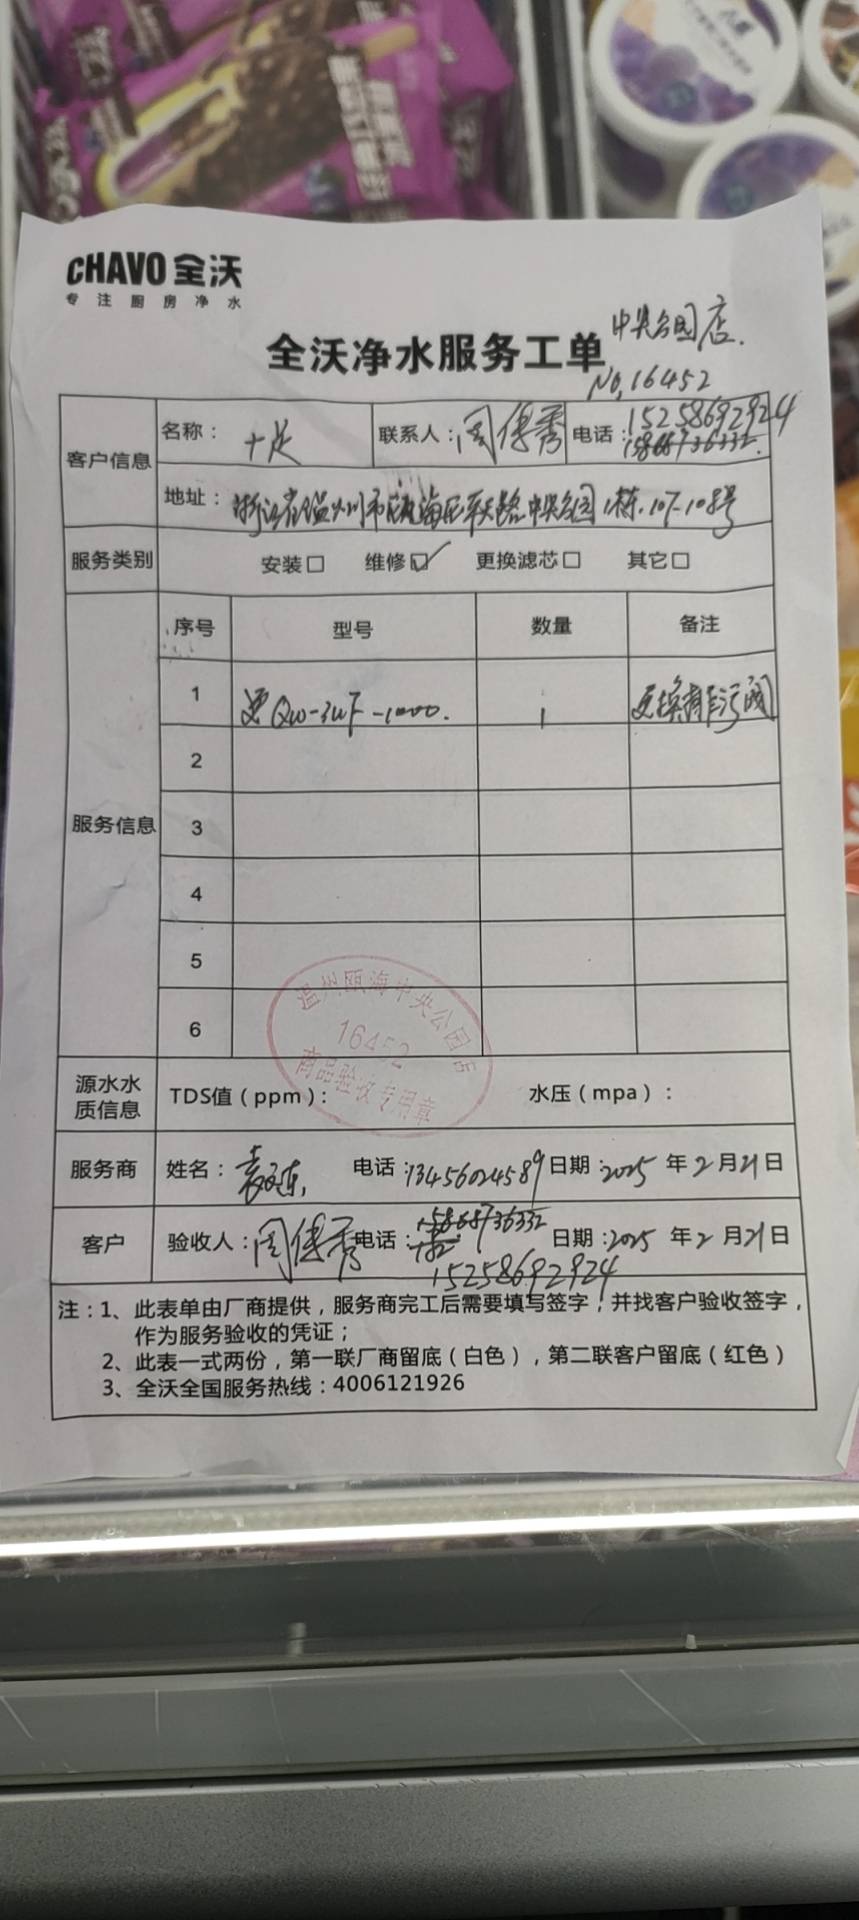 CHAVO 全沃
专注厨房净水
全沃净水服务工单
中央公园店.
No.16452
客户信息 名称：十足 联系人：周傅秀 电话：15258692924
15868736332.
地址：浙江省温州市瓯海区 中央公园1栋.107-108号
服务类别 安装□ 维修☑ 更换滤芯□ 其它□
服务信息
序号 型号 数量 备注
1 QW-3WF-1000. 1 更换排污阀
2
3
4
5
6
温州瓯海中央公园店
16452
商品验收专用章
源水水质信息 TDS值（ppm）： 水压（mpa）：
服务商 姓名： 电话：13456024589 日期：2025年2月21日
客户 验收人：周傅秀 电话：15868736332 日期：2025年2月21日
15258692924
注：1、此表单由厂商提供，服务商完工后需要填写签字，并找客户验收签字，
作为服务验收的凭证；
2、此表一式两份，第一联厂商留底（白色），第二联客户留底（红色）
3、全沃全国服务热线：4006121926